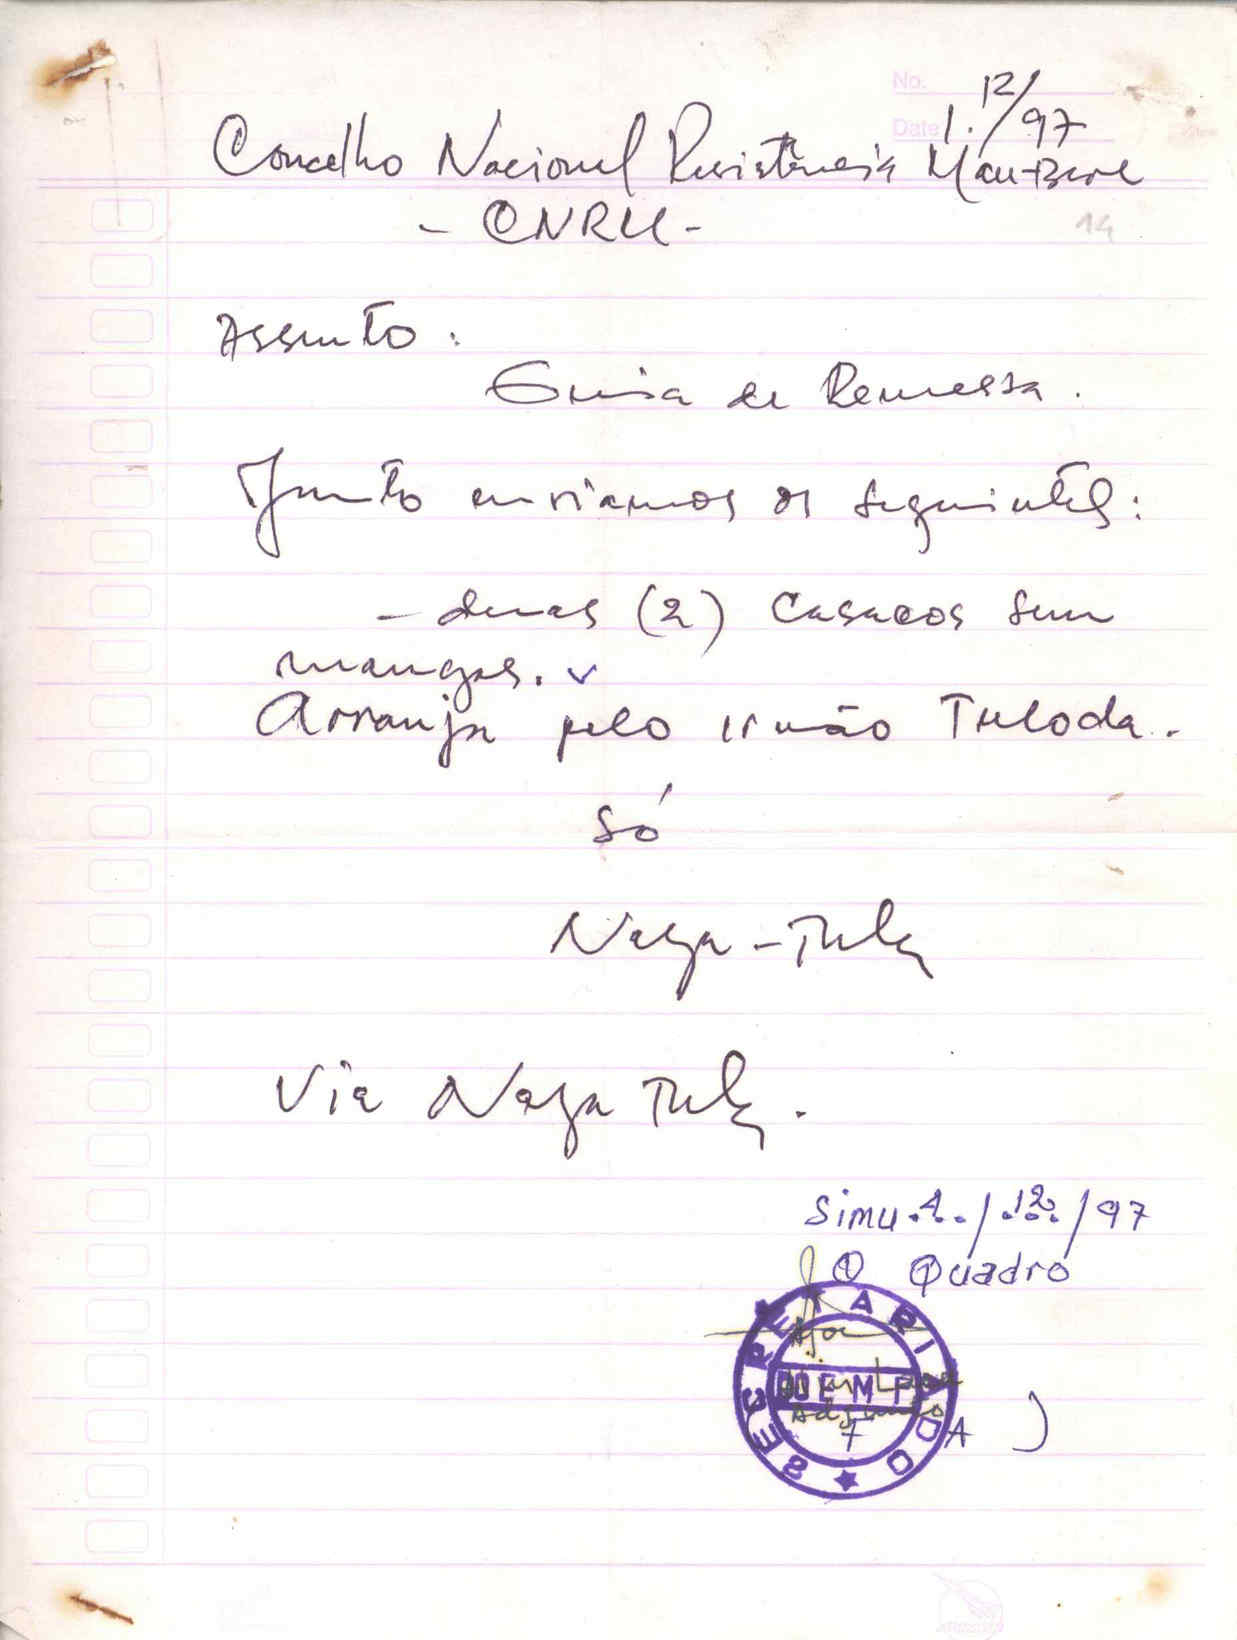 No.
Date 1.12/97
Concelho Nacional Resistência Mau-Bere
- CNRM -
14
Assunto :
Guia de Remessa.
Junto enviamos os seguintes:
- duas (2) Casacos sem
mangas. v
Arranja pelo irmão Tuloda.
Só
Naga - Tula
Via Naga Tula.
Simu. 1. / .12. / 97
O Quadro
SECRETARIADO